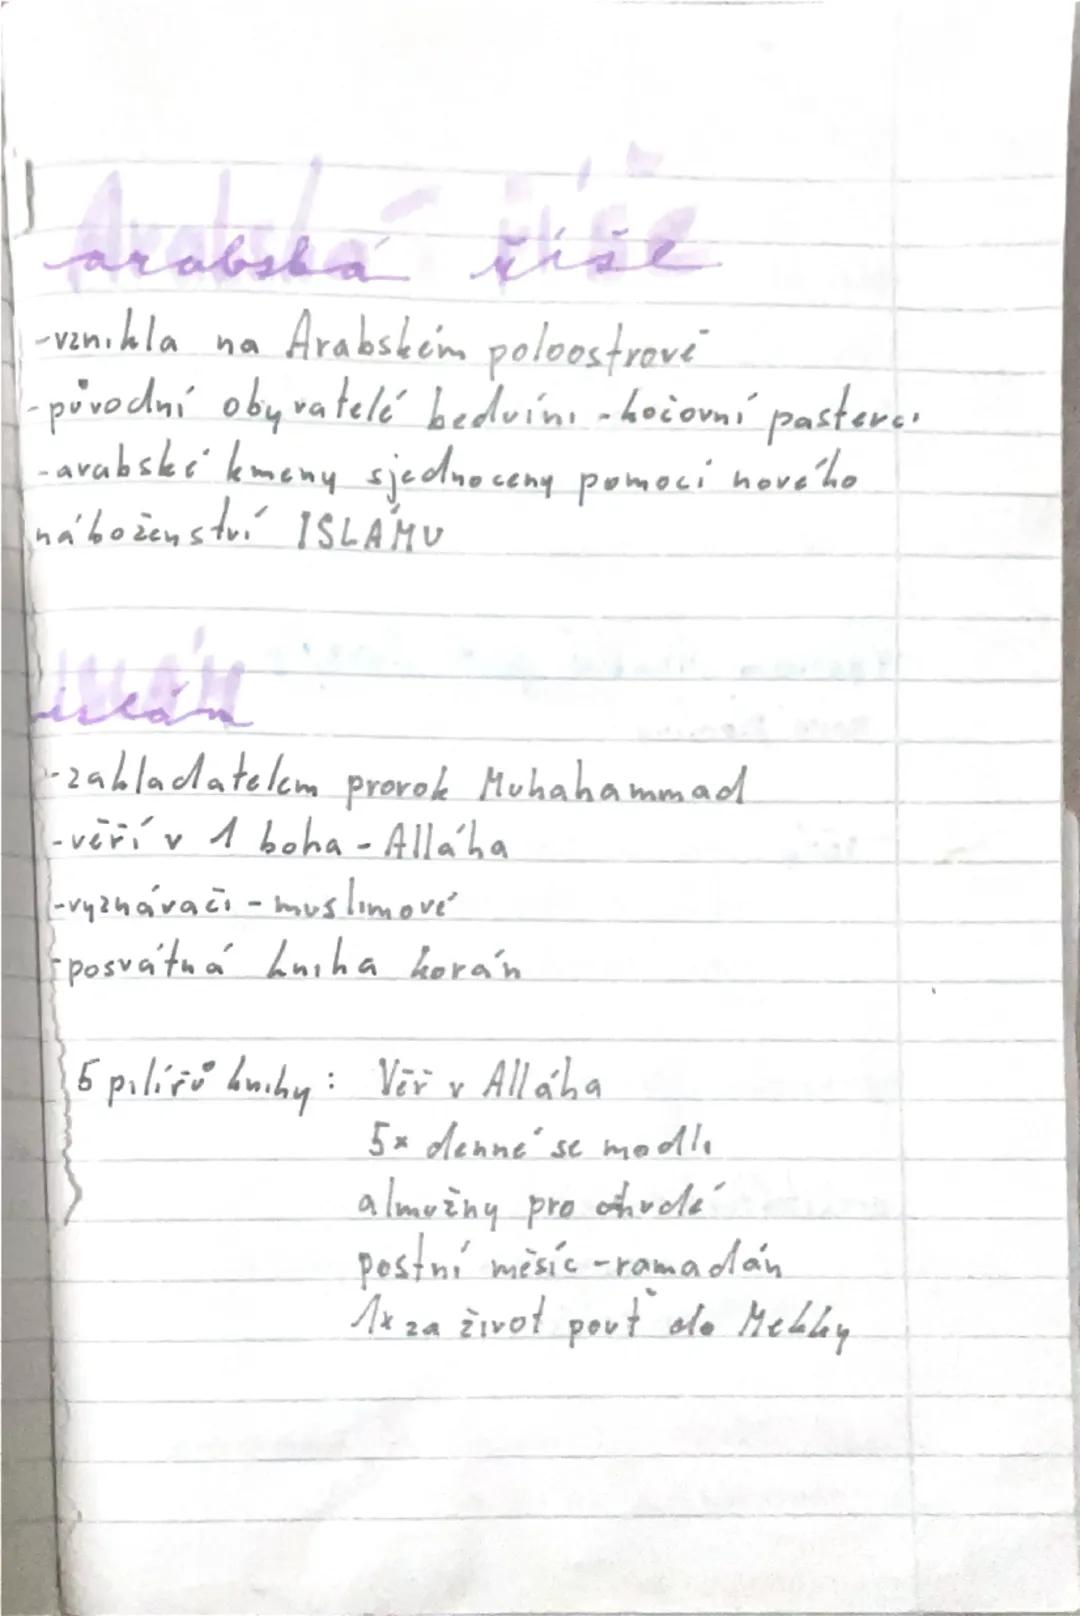 Arabská říše
arabská říše
-vznikla na Arabském poloostrově
-původní obyvatelé beduíni - kočovní pasterci
-arabské kmeny sjednoceny pomocí nového
náboženství ISLÁMU
islám
-zakladatelem prorok Muhahammad
-věří v 1 boha - Alláha
-vyznávači - muslimové
-posvátná kniha korán
5 pilířů knihy: Věř v Alláha
5x denně se modli
almužny pro chudé
postní měsíc - ramadán
1x za život pouť do Mekky